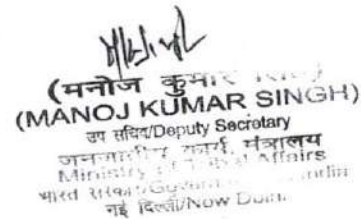 (मनोज कुमार
(MANOJ KUMAR SINGH)
उप सचिव/Deputy Secretary
जनजातीय कार्य मंत्रालय
Ministry of Tribal Affairs
भारत सरकार/Government of India
नई दिल्ली/New Delhi